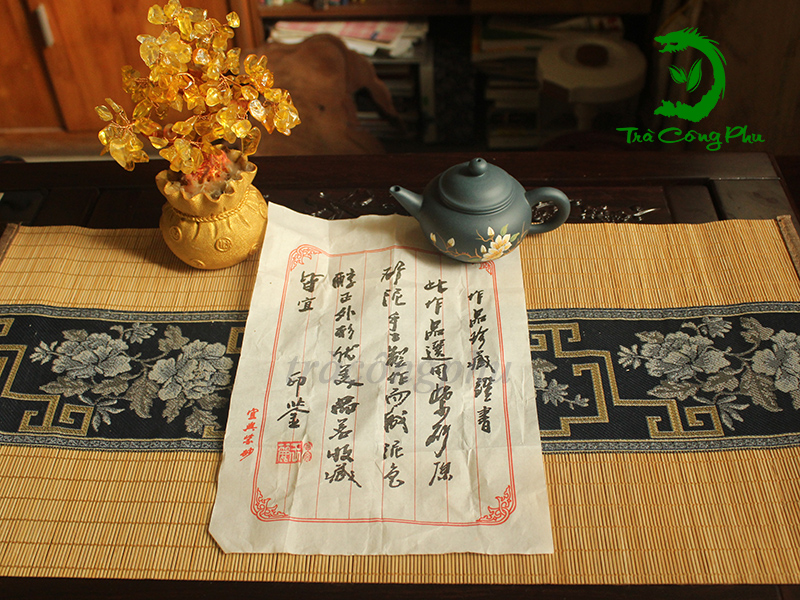 Trà Công Phu
作品珍藏證書
此作品選用紫砂原
矿泥手工製作而成泥色
醇正外形优美品茗收藏
皆宜 印鉴
宜興紫砂
tràcôngphu